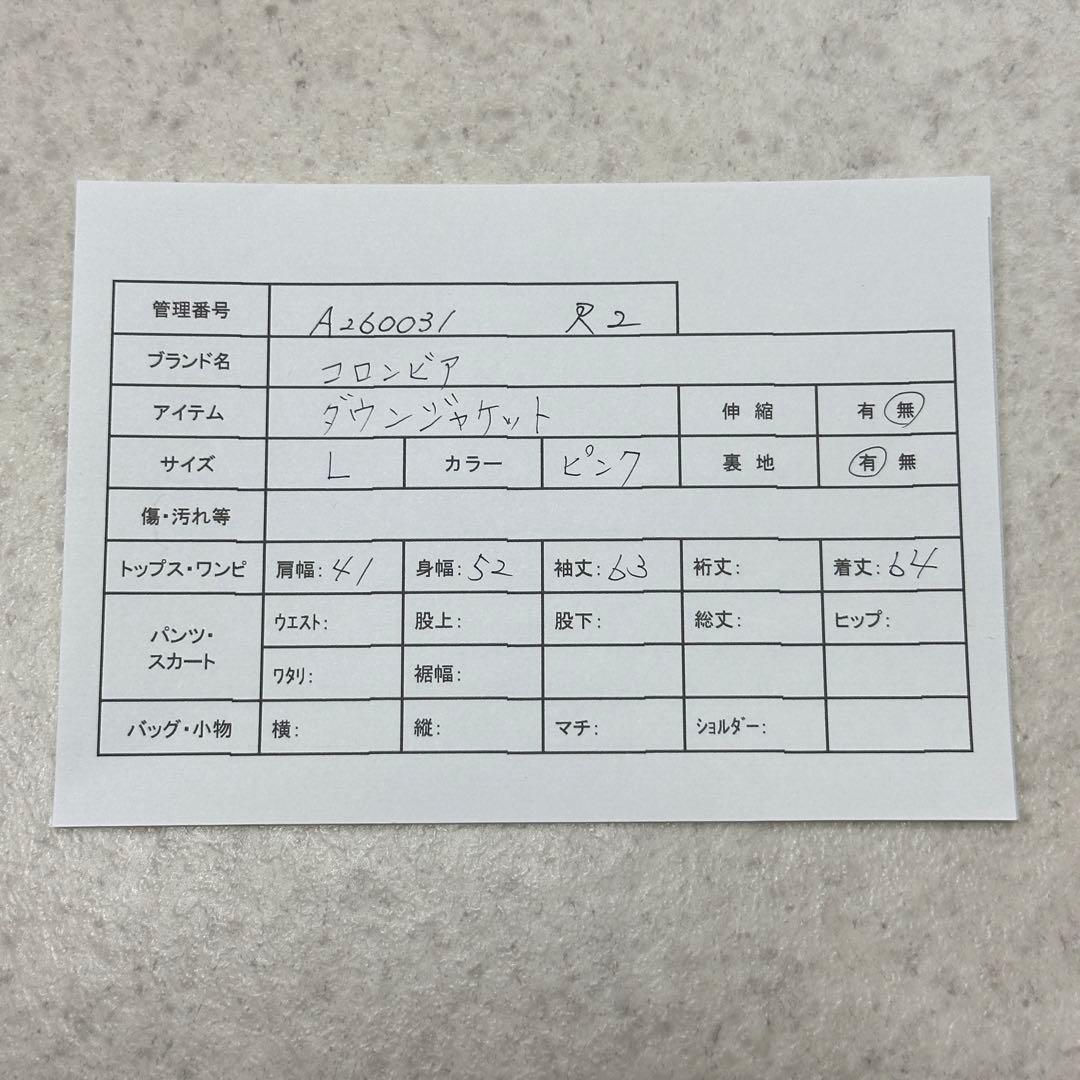 管理番号 A260031 R2
ブランド名 コロンビア
アイテム ダウンジャケット 伸縮 有 無
サイズ L カラー ピンク 裏地 有 無
傷・汚れ等
トップス・ワンピ 肩幅:41 身幅:52 袖丈:63 裄丈: 着丈:64
パンツ・
スカート
ウエスト: 股上: 股下: 総丈: ヒップ:
ワタリ: 裾幅:
バッグ・小物 横: 縦: マチ: ショルダー: